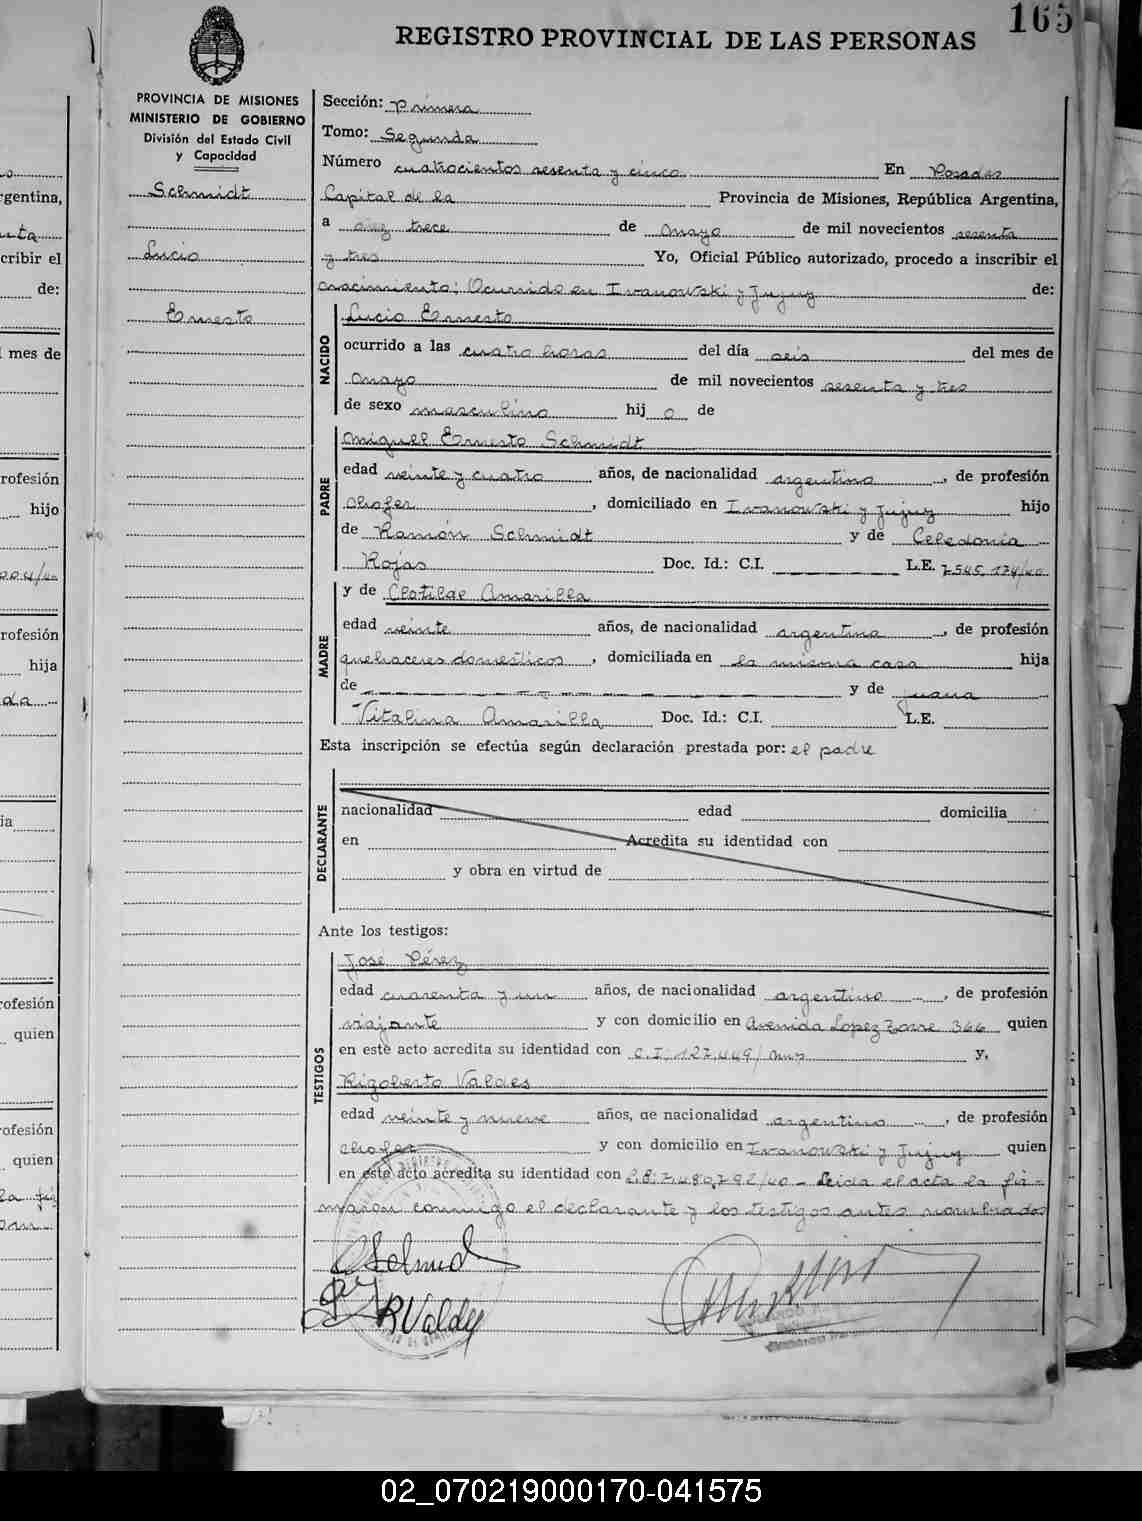 165
REGISTRO PROVINCIAL DE LAS PERSONAS
PROVINCIA DE MISIONES
MINISTERIO DE GOBIERNO
División del Estado Civil
y Capacidad
Schmidt
Lucio
Ernesto
Sección: Primera
Tomo: Segunda
Número cuatrocientos sesenta y cinco En Posadas
Capital de la Provincia de Misiones, República Argentina,
a diez trece de mayo de mil novecientos sesenta
y tres Yo, Oficial Público autorizado, procedo a inscribir el
nacimiento; Ocurrido en Iwanowski y Jujuy de:
NACIDO
Lucio Ernesto
ocurrido a las cuatro horas del día seis del mes de
mayo de mil novecientos sesenta y tres
de sexo masculino hij o de
PADRE
Miguel Ernesto Schmidt
edad veinte y cuatro años, de nacionalidad argentino, de profesión
chofer, domiciliado en Iwanowski y Jujuy hijo
de Ramón Schmidt y de Celedonia
Rojas Doc. Id.: C.I. L.E. 7.545.174/40
y de Clotilde Amarilla
MADRE
edad veinte años, de nacionalidad argentina, de profesión
quehaceres domésticos, domiciliada en la misma casa hija
de y de Juana
Vitalina Amarilla Doc. Id.: C.I. L.E.
Esta inscripción se efectúa según declaración prestada por: el padre
DECLARANTE
nacionalidad edad domicilia
en Acredita su identidad con
y obra en virtud de
Ante los testigos:
TESTIGOS
José Pérez
edad cuarenta y un años, de nacionalidad argentino, de profesión
viajante y con domicilio en Avenida Lopez Torre 366 quien
en este acto acredita su identidad con C.I: 127.449/ mns y,
Rigoberto Valdes
edad veinte y nueve años, de nacionalidad argentino, de profesión
chofer y con domicilio en Iwanowski y Jujuy quien
en este acto acredita su identidad con L.E: 7.480.792/40 - Leida el acta la fir-
maron conmigo el declarante y los testigos antes nombrados
Schmid
RValdes
02_070219000170-041575